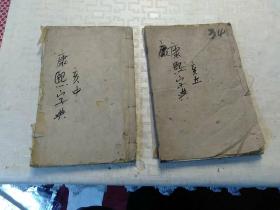 康熙字典
亥中
34
康熙字典
亥上